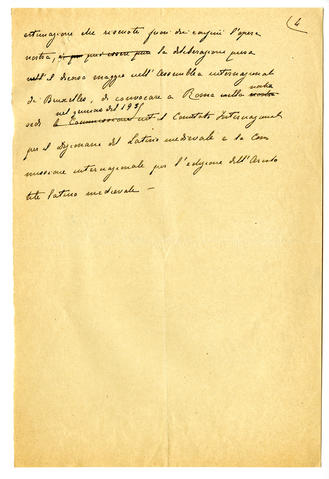 4
estimazione che riscuote fuori dei confini l'opera
nostra, si può può essere può la deliberazione presa
nello scorso maggio nell'Assemblea internazionale
di Bruxelles, di convocare a Roma nella nostra
nel gennaio del 193
sede il Comitato Internazionale
per il dizionario del Latino medievale e la Com
missione internazionale per l'edizione dell'Aristo
tele latino medievale —